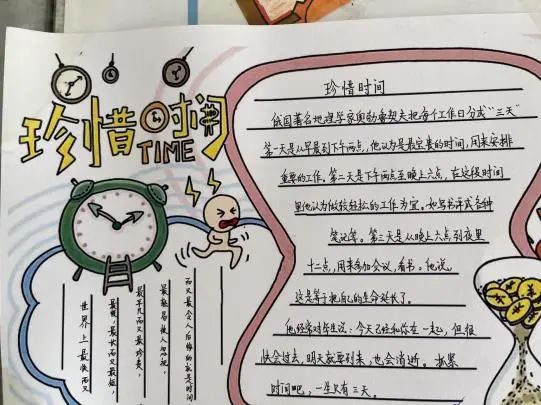 珍惜时间
TIME
珍惜时间
俄国著名地理学家奥勃鲁契夫把每个工作日分成“三天”
第一天是从早晨到下午两点，他认为是最宝贵的时间，用来安排
重要的工作。第二天是下午两点至晚上六点，在这段时间
里他认为做较轻松的工作为宜。如写书评或各种
笔记等。第三天是从晚上六点到夜里
十二点，用来参加会议，看书。他说。
这是等于把自己的生命延长了。
他经常对学生说：今天已经和你在一起，但很
快会过去，明天就要到来，也会消逝。抓紧
时间吧，一生只有三天。
世界上最快而又
最慢，最长而又最短，
最平凡而又最珍贵，
最易被人忽视，
而又最令人后悔的就是时间